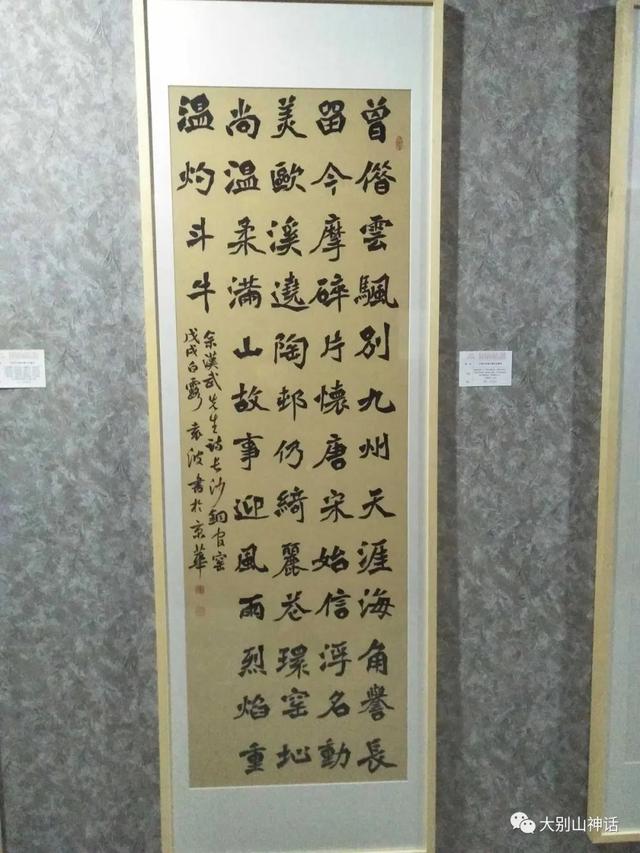 曾偕雲颿別九州天涯海角譽長
留今摩碎片懷唐宋始信浮名動
美歐溪遶陶邨仍綺麗巷環窑址
尚溫柔滿山故事迎風雨烈焰重
溫灼斗牛
余漢武先生詩長沙銅官窑
戊戌白露袁波書於京華
大别山神话